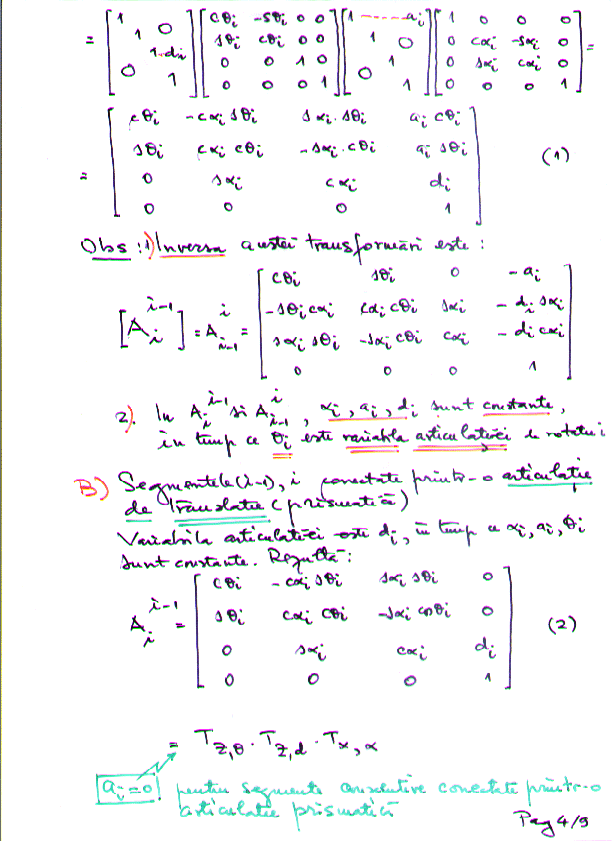 = [1 1 0 1 di 0 1] [cθi -sθi 0 0 sθi cθi 0 0 0 0 1 0 0 0 0 1] [1 ------ ai 1 0 0 1 1] [1 0 0 0 0 cαi -sαi 0 0 sαi cαi 0 0 0 0 1] =
cθi -cαi sθi sαi·sθi ai cθi
sθi cαi cθi -sαi·cθi ai sθi (1)
= 0 sαi cαi di
0 0 0 1
Obs: 1) Inversa acestei transformări este:
cθi sθi 0 -ai
[Ai^i-1] = A_i-1^i = -sθi cαi cαi cθi sαi -di sαi
sαi sθi -sαi cθi cαi -di cαi
0 0 0 1
2). In Ai^i-1 si A_i-1^i, αi, ai, di sunt constante,
în timp ce θi este variabila articulatiei de rotatei
B) Segmentele (i-1), i conectate printr-o articulatie
de Translatie (prismatică)
Variabila articulatiei este di, în timp ce αi, ai, θi
sunt constante. Rezultă:
cθi -cαi sθi sαi sθi 0
Ai^i-1 = sθi cαi cθi -sαi cosθi 0 (2)
0 sαi cαi di
0 0 0 1
= Tz,θ · Tz,d · Tx,α
ai=0 pentru segmente consecutive conectate printr-o
articulatie prismatică
Pag 4/9